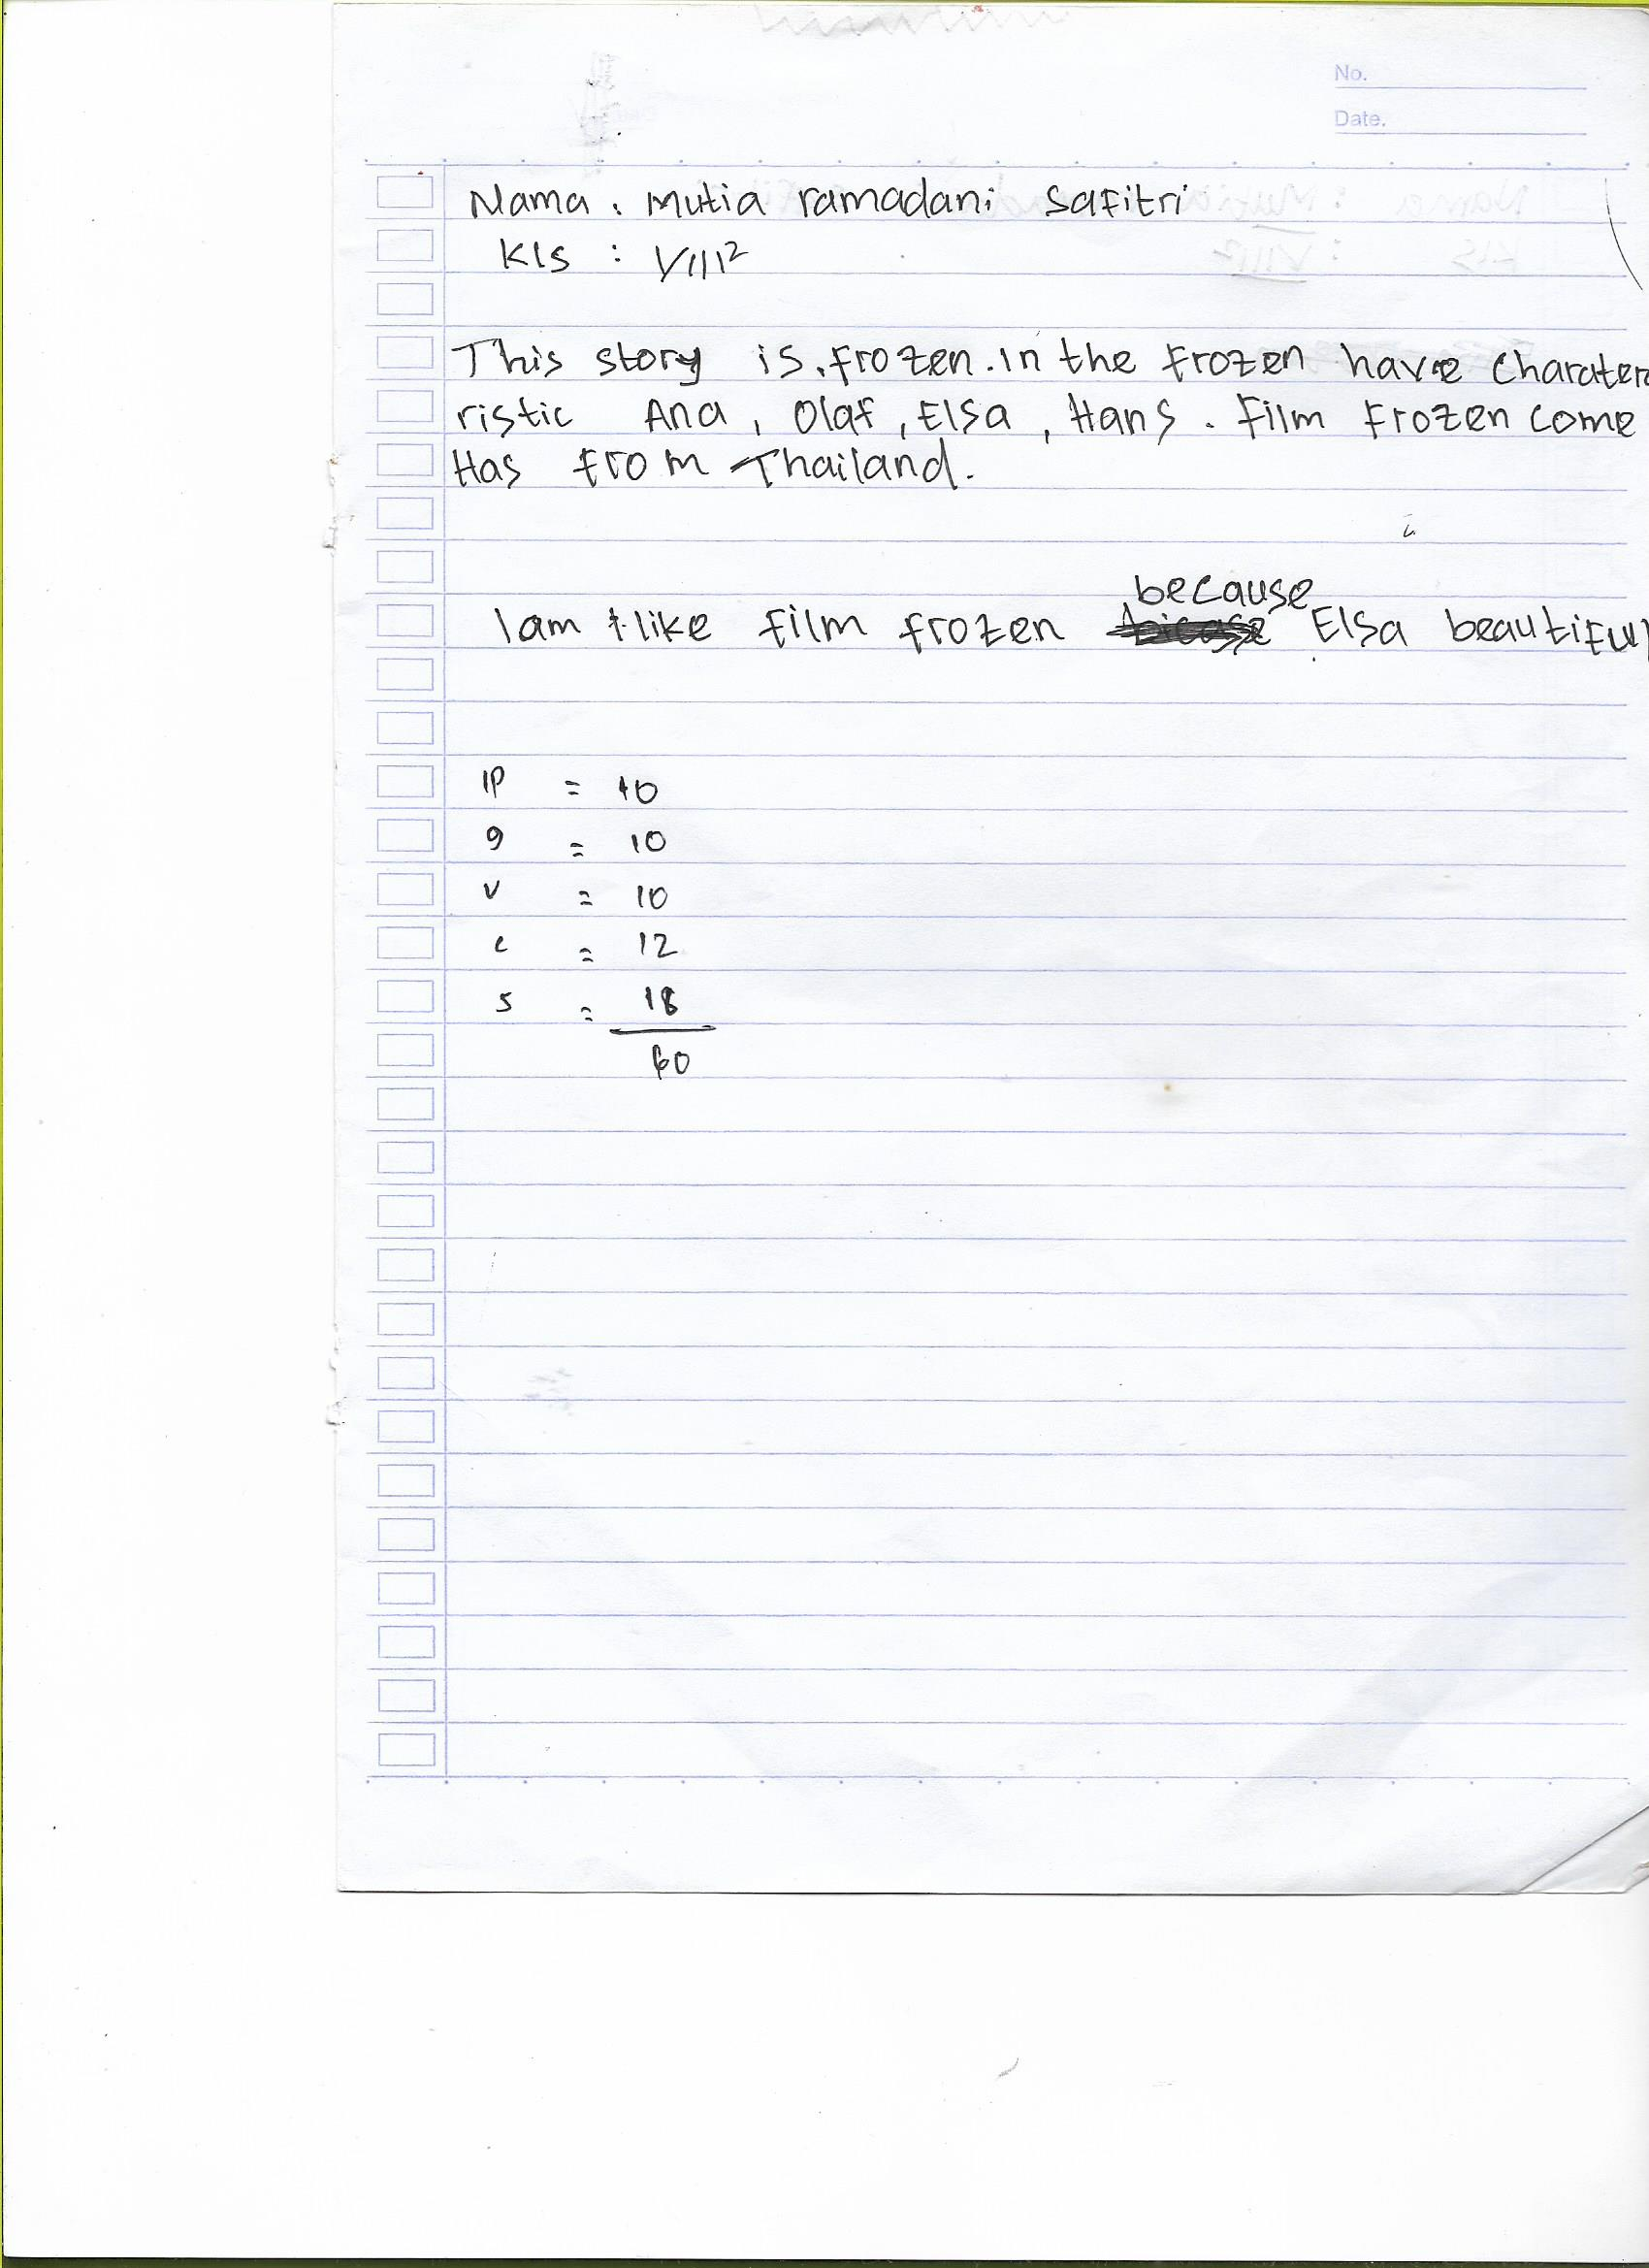 No.
Date.
Nama : Mutia ramadani Safitri
Kls : VIII²
This story is. frozen. in the frozen have charater
ristic Ana, Olaf, Elsa, Hans. Film frozen come
Has from Thailand.
because
I am like film frozen Elsa beautiful
IP = 10
g = 10
v = 10
c = 12
s = 18
60